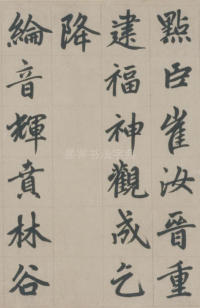 點臣崔汝晉重
建福神觀成乞
降
綸音輝賁林谷